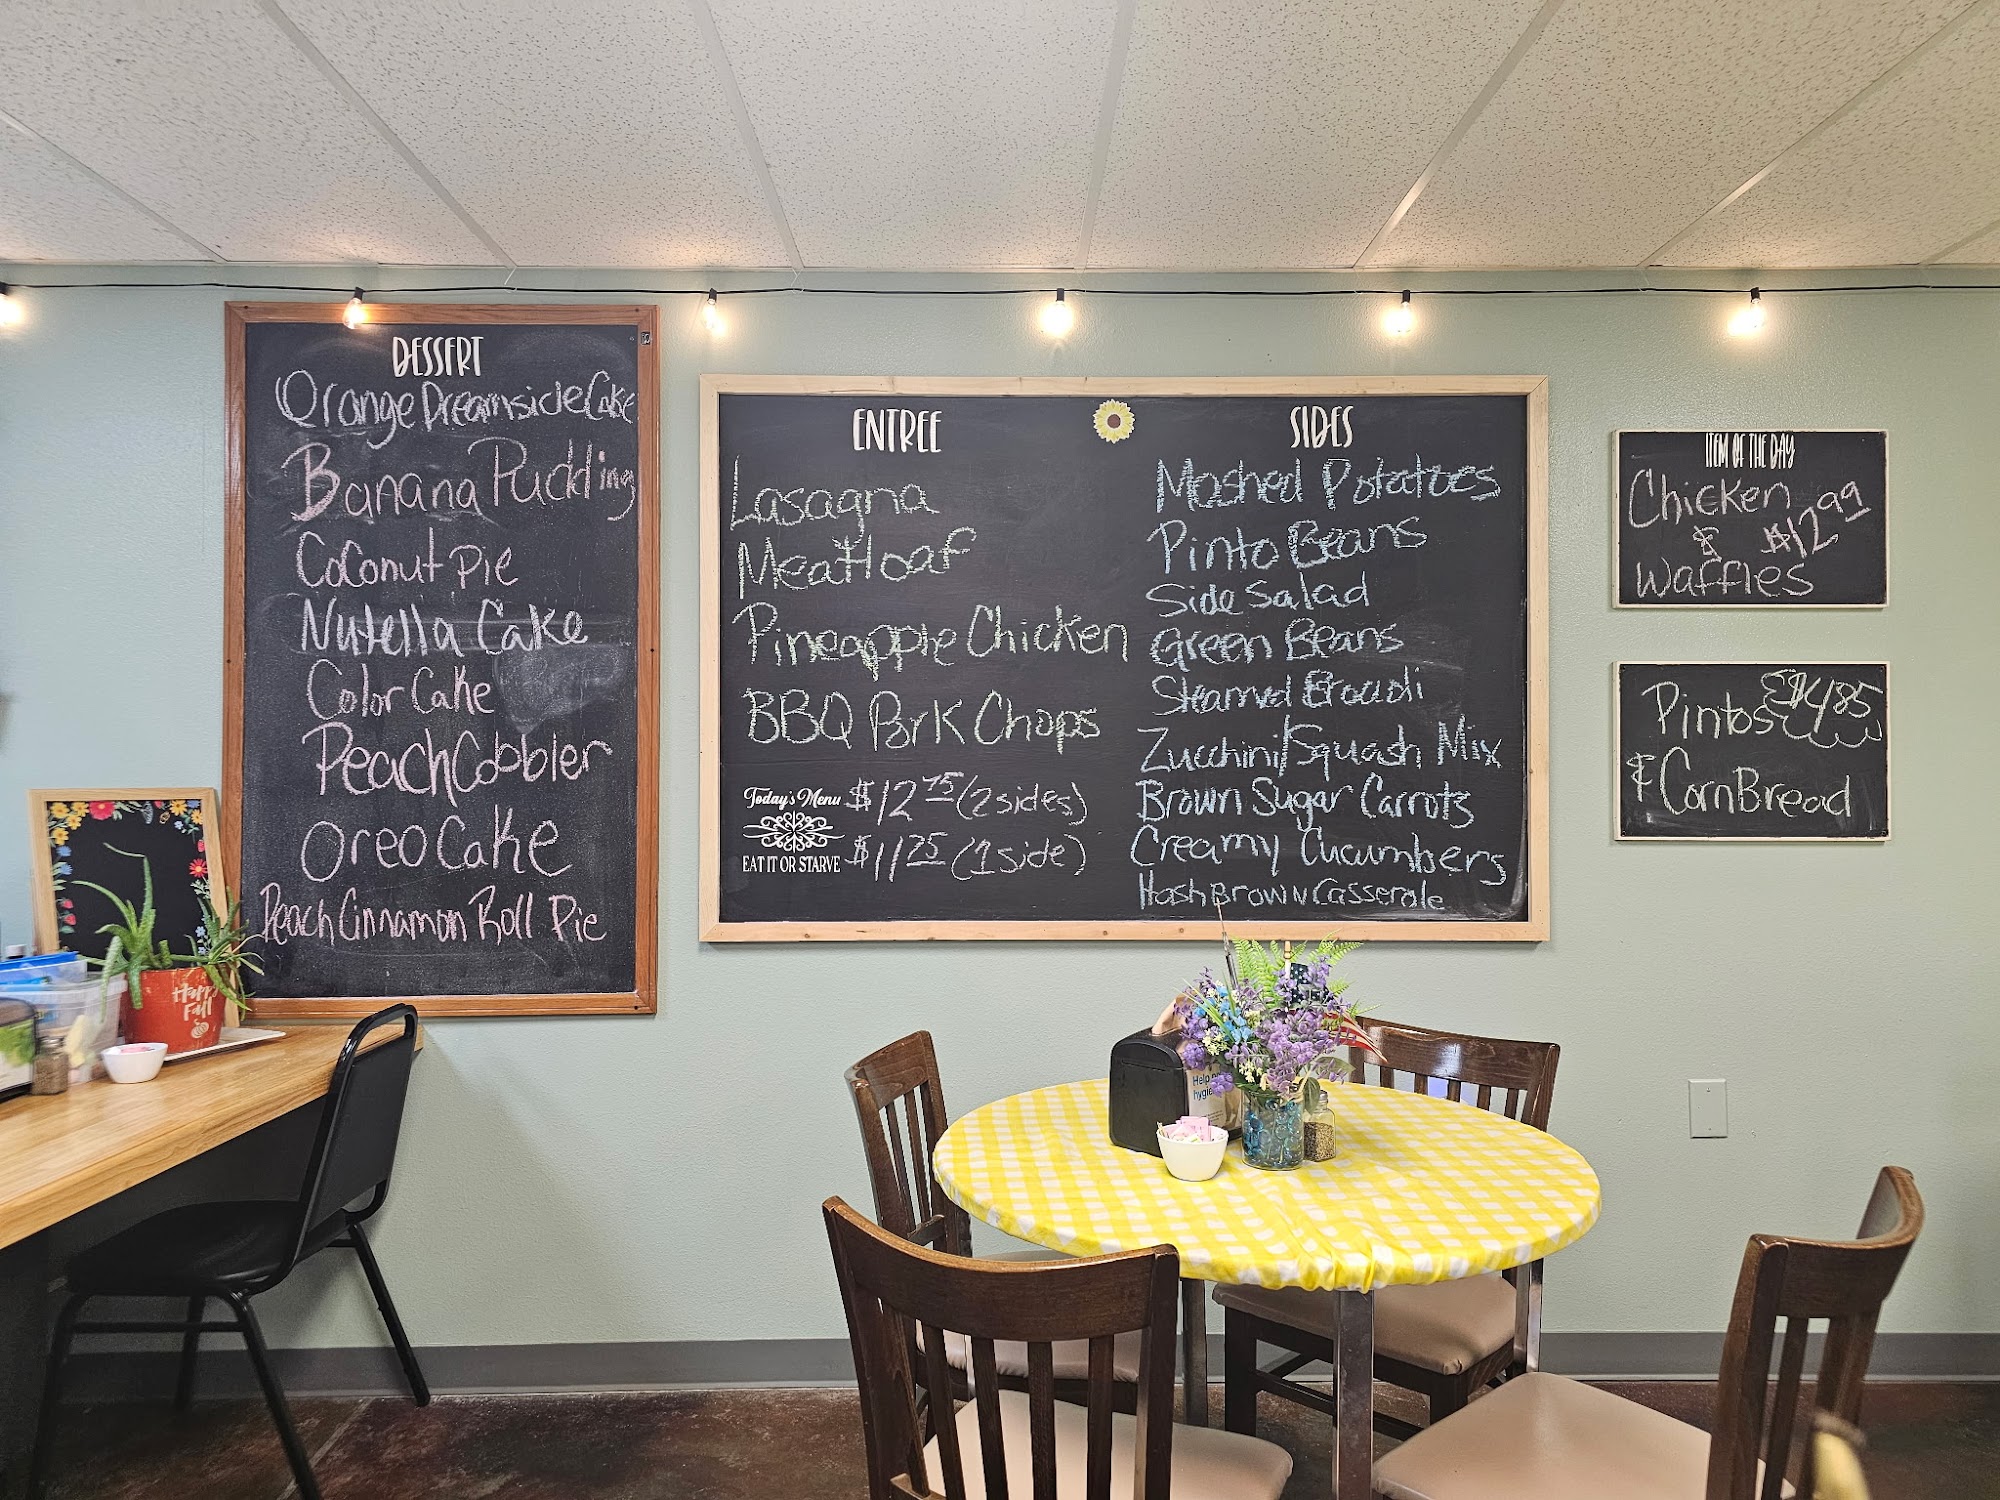 DESSERT
Orange Dreamside Cake
Banana Pudding
Coconut Pie
Nutella Cake
Color Cake
Peach Cobbler
Oreo Cake
Peach Cinnamon Roll Pie
ENTREE
Lasagna
Meatloaf
Pineapple Chicken
BBQ Pork Chops
Today's Menu
EAT IT OR STARVE
$12.75 (2 sides)
$11.25 (1 side)
SIDES
Mashed Potatoes
Pinto Beans
Side Salad
Green Beans
Steamed Brocoli
Zucchini/Squash Mix
Brown Sugar Carrots
Creamy Cucumbers
HashBrown Casserole
ITEM OF THE DAY
Chicken
& $12.99
Waffles
Pintos $4.85
& CornBread
Happy
Fall
Help